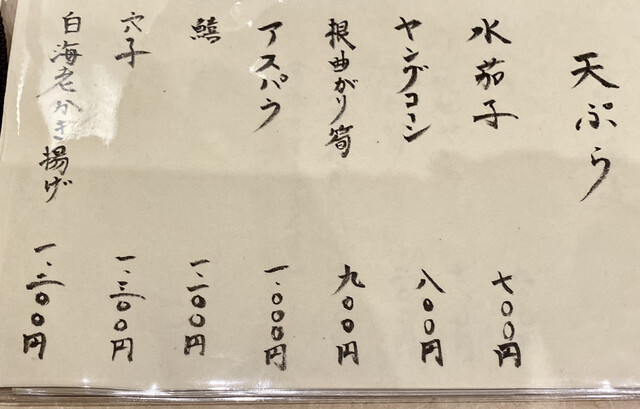 天ぷら
水茄子 七〇〇円
ヤングコーン 八〇〇円
根曲がり筍 九〇〇円
アスパラ 一、〇〇〇円
鱚 一、二〇〇円
穴子 一、三〇〇円
白海老かき揚げ 一、三〇〇円